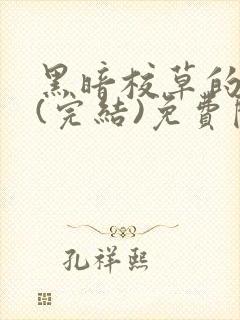 黑暗校草的
(完結)免費
孔祥熙